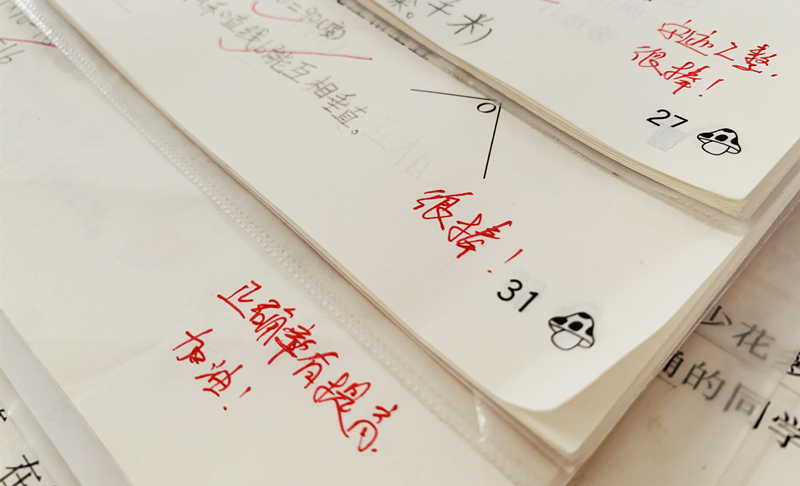 米)
=90(度)
连线能互相垂直。
字迹工整,
很棒!
27
O
很棒!
31
正确率有提高
加油!
16
少花
的同学
在